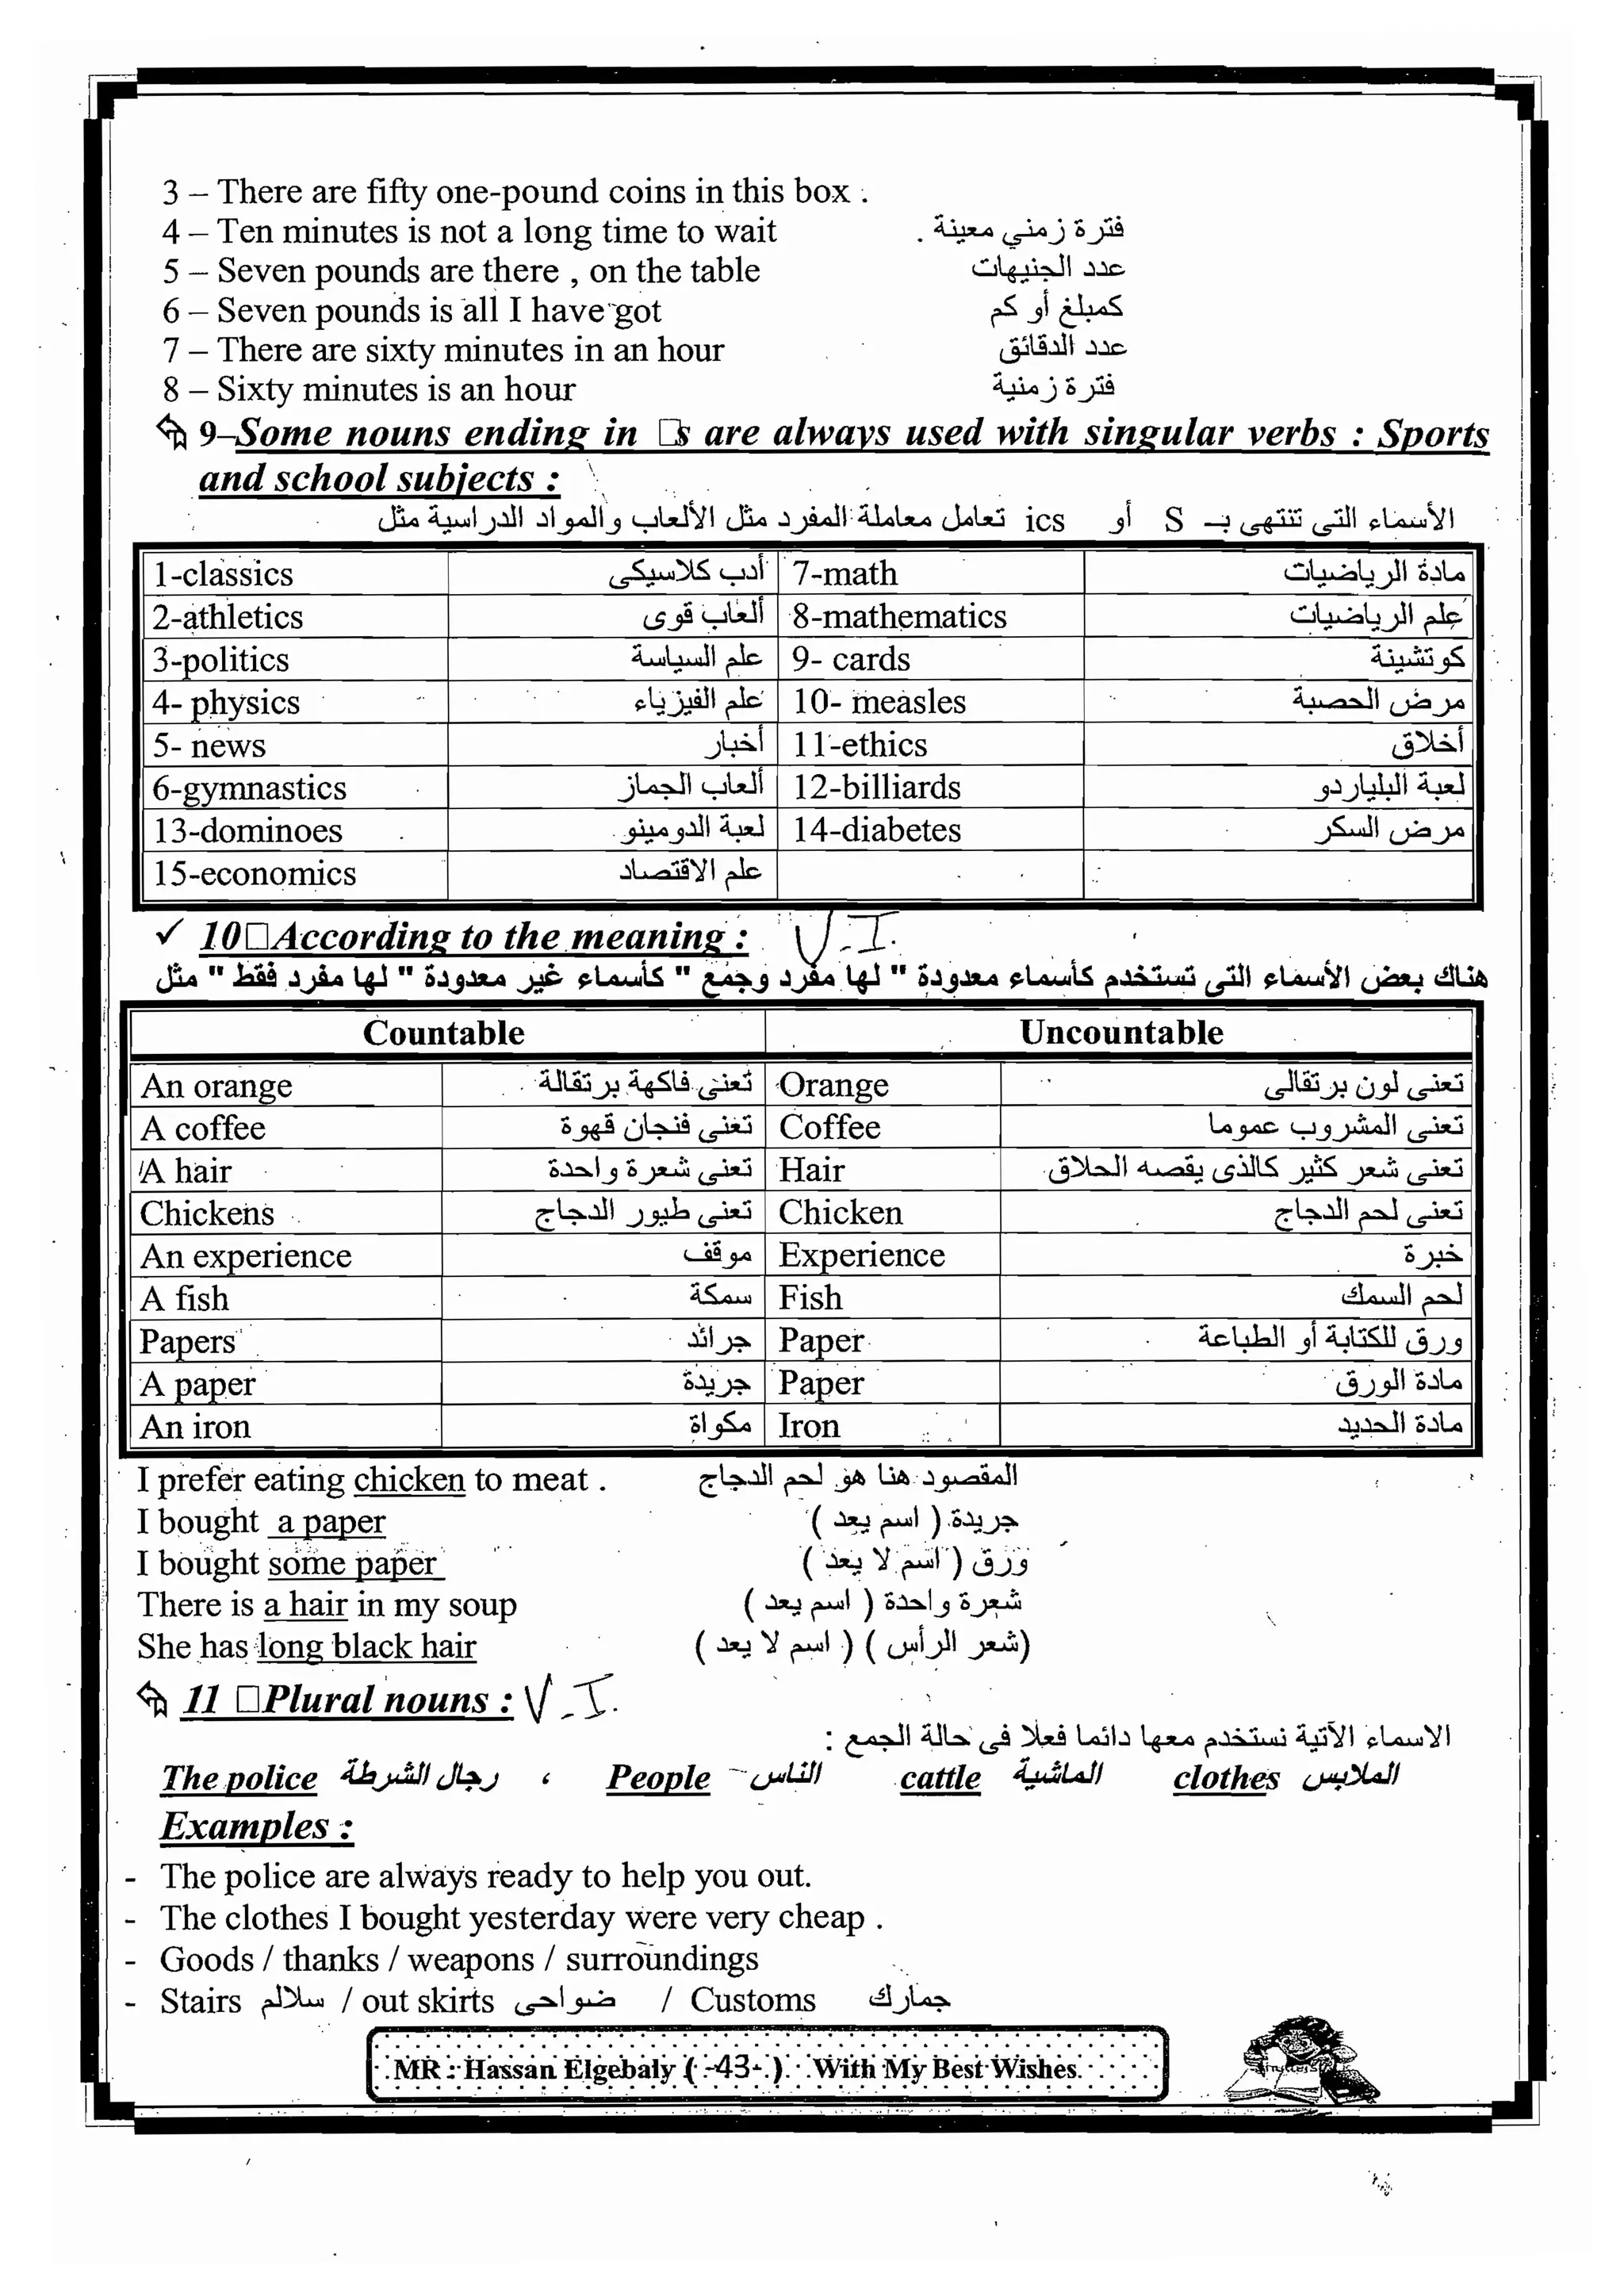 3 – There are fifty one-pound coins in this box .
4 – Ten minutes is not a long time to wait فترة زمني معينة .
5 – Seven pounds are there , on the table عدد الجنيهات
6 – Seven pounds is all I have got كمبلغ أو كم
7 – There are sixty minutes in an hour عدد الدقائق
8 – Sixty minutes is an hour فترة زمنية
9–Some nouns ending in □s are always used with singular verbs : Sports
and school subjects :
الأسماء التى تنتهى بـ S أو ics تعامل معاملة المفرد مثل الألعاب والمواد الدراسية مثل
1-classics أدب كلاسيكى 7-math مادة الرياضيات
2-athletics ألعاب قوى 8-mathematics علم الرياضيات
3-politics علم السياسة 9- cards كوتشينة
4- physics علم الفيزياء 10- measles مرض الحصبة
5- news أخبار 11-ethics أخلاق
6-gymnastics ألعاب الجماز 12-billiards لعبة البلياردو
13-dominoes لعبة الدومينو 14-diabetes مرض السكر
15-economics علم الاقتصاد
✓ 10□According to the meaning : V.I.
هناك بعض الأسماء التى تستخدم كأسماء معدودة " لها مفرد وجمع " كأسماء غير معدودة " لها مفرد فقط " مثل
Countable Uncountable
An orange تعنى فاكهة برتقالة Orange تعنى لون برتقالى
A coffee تعنى فنجان قهوة Coffee تعنى المشروب عموما
A hair تعنى شعرة واحدة Hair تعنى شعر كثير كالذى يقصه الحلاق
Chickens تعنى طيور الدجاج Chicken تعنى لحم الدجاج
An experience موقف Experience خبرة
A fish سمكة Fish لحم السمك
Papers جرائد Paper ورق للكتابة أو الطباعة
A paper جريدة Paper مادة الورق
An iron مكواة Iron مادة الحديد
I prefer eating chicken to meat . المقصود هنا هو لحم الدجاج
I bought a paper جريدة ( اسم يعد )
I bought some paper ورق ( اسم لا يعد )
There is a hair in my soup شعرة واحدة ( اسم يعد )
She has long black hair (شعر الرأس ) ( اسم لا يعد )
11 □Plural nouns : V.I.
الاسماء الآتية نستخدم معها دائما فعلا فى حالة الجمع :
The police رجال الشرطة ، People الناس cattle الماشية clothes الملابس
Examples :
- The police are always ready to help you out.
- The clothes I bought yesterday were very cheap .
- Goods / thanks / weapons / surroundings
- Stairs سلالم / out skirts ضواحى / Customs جمارك
MR : Hassan Elgebaly ( -43- ) With My Best Wishes